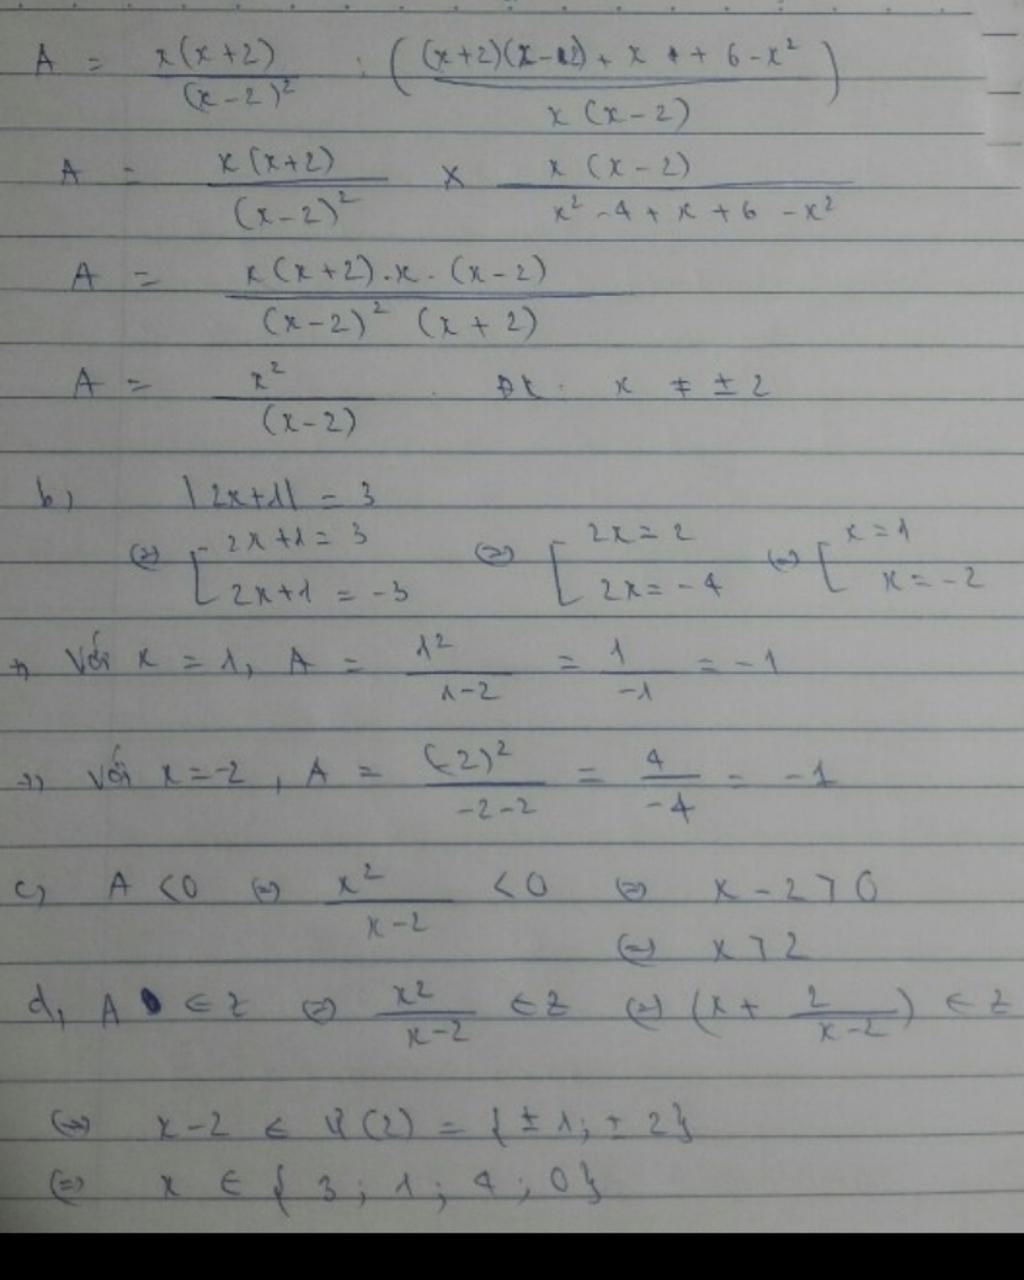 A = x(x+2) / (x-2)² : ( ((x+2)(x-2) + x + 6 - x²) / x(x-2) )
A = x(x+2) / (x-2)² × x(x-2) / x² - 4 + x + 6 - x²
A = x(x+2).x.(x-2) / (x-2)² (x+2)
A = x² / (x-2) . ĐK: x ≠ ±2
b) |2x+1| = 3
(=) [ 2x+1 = 3 ; 2x+1 = -3 (=) [ 2x = 2 ; 2x = -4 (=) [ x = 1 ; x = -2
+) Với x = 1, A = 1² / 1-2 = 1 / -1 = -1
+) Với x = -2, A = (-2)² / -2-2 = 4 / -4 = -1
c) A < 0 (=) x² / x-2 < 0 (=) x - 2 > 0
(=) x > 2
d, A ∈ Z (=) x² / x-2 ∈ Z (=) (x + 2 / x-2) ∈ Z
(=) x-2 ∈ Ư(2) = {±1; ±2}
(=) x ∈ {3; 1; 4; 0}